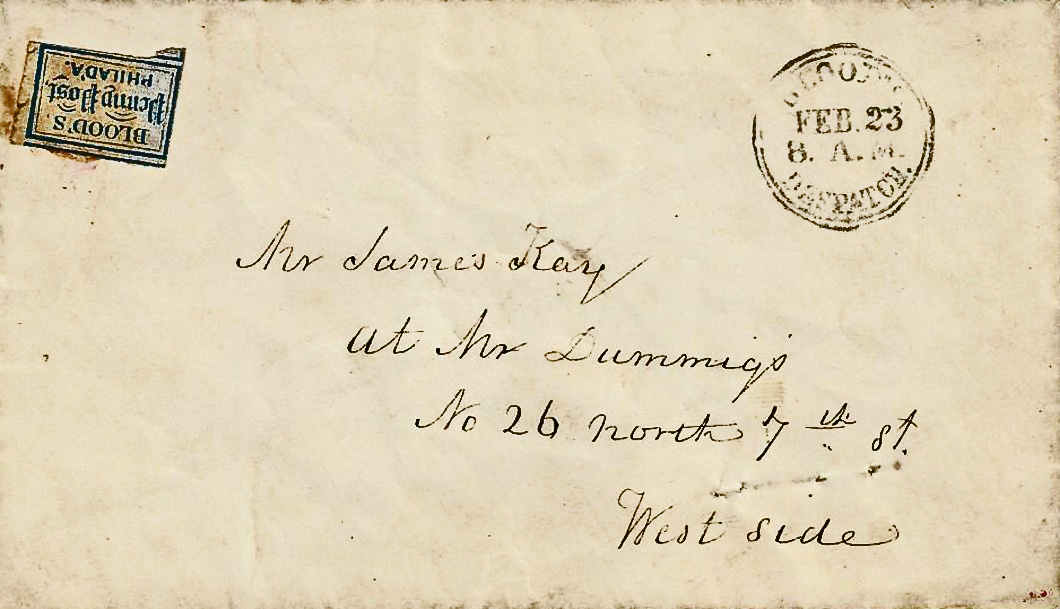 BLOOD'S
Penny Post,
PHILAD'A.
BLOOD'S
FEB. 23
8. A.M.
DESPATCH.
Mr James Kay
at Mr Dummig's
No 26 north 7th st.
West side